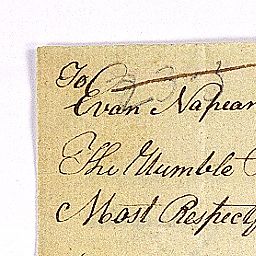 To
Evan Napean
The Humble
Most Respectf